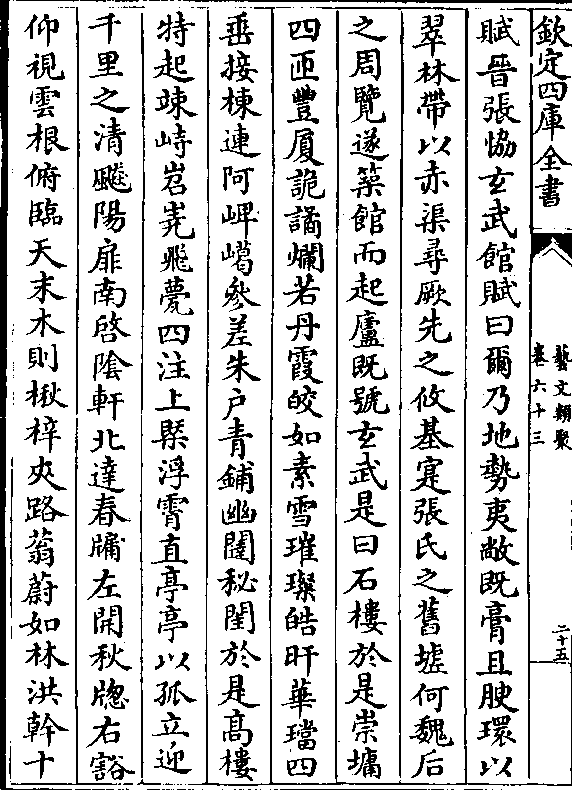 欽定四庫全書
藝文類聚
卷六十三
二十五
賦晉張恊玄武館賦曰爾乃地勢夷敞既膏且腴環以
翠林帶以赤渠尋厥先之攸基寔張氏之舊墟何魏后
之周覽遂築館而起廬既號玄武是曰石樓於是崇墉
四匝豐厦詭譎爛若丹霞皎如素雪璀璨皓旰華璫四
垂接棟連阿岬嵑參差朱戶青鋪幽闥秘閨於是高樓
特起竦峙岧嶤飛甍四注上緊浮霄直亭亭以孤立迎
千里之清飈陽扉南啓陰軒北達春牖左開秋牕右豁
仰視雲根俯臨天末木則楸梓夾路蓊蔚如林洪幹十